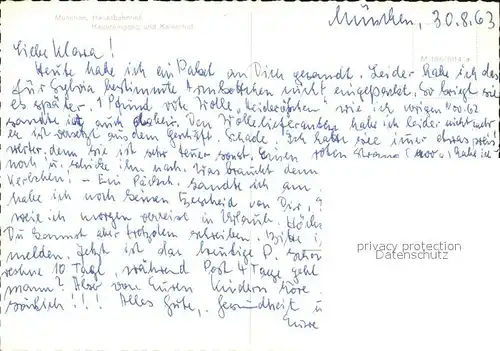 München, Hauptbahnhof,
Haupteingang und Kaiserhof
München, 30.8.63
M 166/8014 a
Liebe Klara!
Heute habe ich ein Paket an Dich gesandt. Leider habe ich das
für Sylvia bestimmte nicht eingepackt. So kriegt sie
es später. 1 Pfund rote Wolle, wie ich vorigen Nov. 62
sandte ist auch dabei. Den Wollelieferanten habe ich leider nicht mehr
er ist aus dem Geschäft. Schade. Ich hatte sie immer etwas preis
werter, denn sie ist sehr teuer sonst. Einen roten habe ich
noch u. schicke ihn nach. Was braucht denn
Kerlchen! – Ein Päckch. sandte ich am
habe ich noch keinen Bescheid von Dir.
weil ich morgen verreise in Urlaub.
Du kannst aber trotzdem schreiben. Bitte
melden. Jetzt ist das heutige P. schon
rechne 10 Tage, während Post 4 Tage geht
mann? Aber von Euren Kindern höre
!!! Alles Gute, Gesundheit u
Eure
privacy protection
Datenschutz